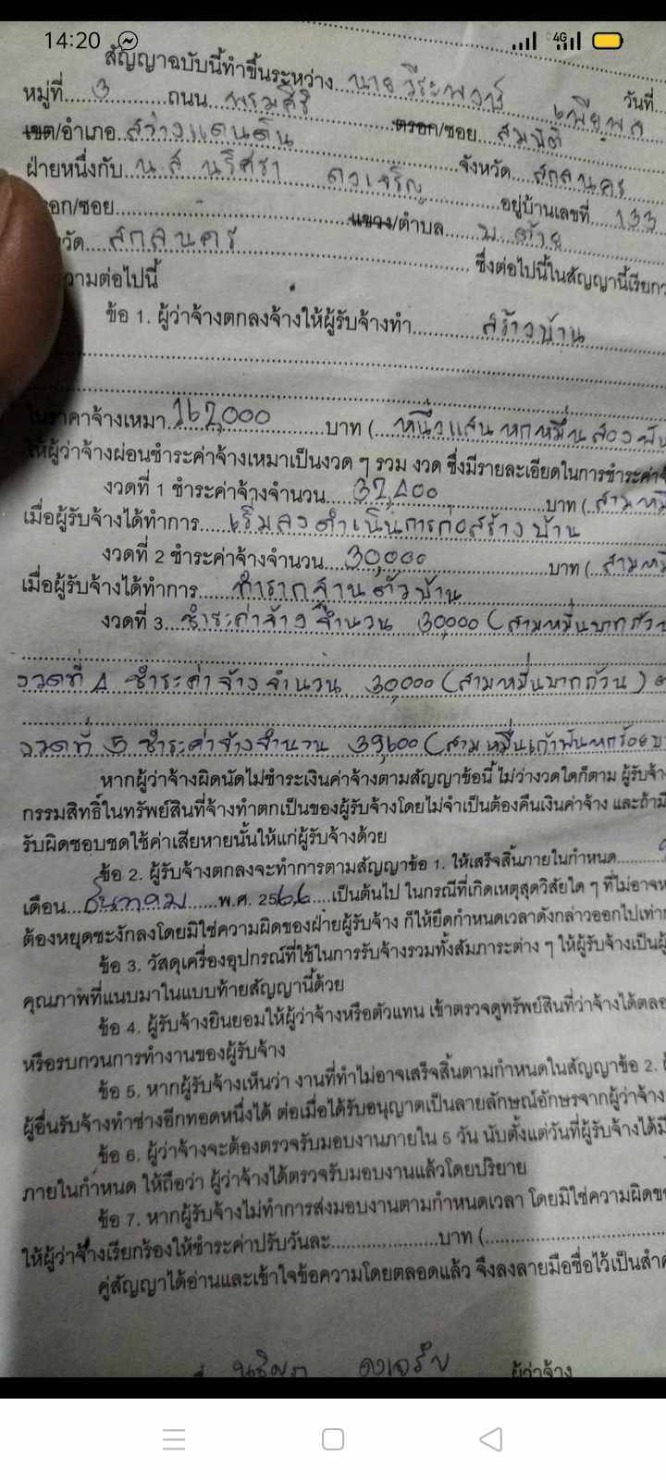 14:20
4G
สัญญาฉบับนี้ทำขึ้นระหว่าง นายวีระพงษ์ เพียพล วันที่
หมู่ที่ 3 ถนน พรมศิริ ตรอก/ซอย สมบัติ
เขต/อำเภอ สว่างแดนดิน จังหวัด สกลนคร
ฝ่ายหนึ่งกับ น.ส นริศรา ดวงเจริญ อยู่บ้านเลขที่ 133
รอก/ซอย แขวง/ตำบล
วัด สกลนคร ซึ่งต่อไปนี้ในสัญญานี้เรียก
วามต่อไปนี้
ข้อ 1. ผู้ว่าจ้างตกลงจ้างให้ผู้รับจ้างทำ สร้างบ้าน
ในราคาจ้างเหมา 162,000 บาท ( หนึ่งแสนหกหมื่นสองพัน
ให้ผู้ว่าจ้างผ่อนชำระค่าจ้างเหมาเป็นงวด ๆ รวม งวด ซึ่งมีรายละเอียดในการชำระค่าจ้
งวดที่ 1 ชำระค่าจ้างจำนวน 32,400 บาท ( สามหมื่
เมื่อผู้รับจ้างได้ทำการ เริ่มลงดำเนินการก่อสร้างบ้าน
งวดที่ 2 ชำระค่าจ้างจำนวน 30,000 บาท ( สามหมื่
เมื่อผู้รับจ้างได้ทำการ ทำรากฐานตัวบ้าน
งวดที่ 3 ชำระค่าจ้าง จำนวน 30000 (สามหมื่นบาทถ้วน
งวดที่ 4 ชำระค่าจ้างจำนวน 30,000 (สามหมื่นบาทถ้วน)
งวดที่ 5 ชำระค่าจ้างจำนวน 39,600 (สามหมื่นเก้าพันหกร้อย
หากผู้ว่าจ้างผิดนัดไม่ชำระเงินค่าจ้างตามสัญญาข้อนี้ ไม่ว่างวดใดก็ตาม ผู้รับจ้า
กรรมสิทธิ์ในทรัพย์สินที่จ้างทำตกเป็นของผู้รับจ้างโดยไม่จำเป็นต้องคืนเงินค่าจ้าง และถ้ามี
รับผิดชอบชดใช้ค่าเสียหายนั้นให้แก่ผู้รับจ้างด้วย
ข้อ 2. ผู้รับจ้างตกลงจะทำการตามสัญญาข้อ 1. ให้เสร็จสิ้นภายในกำหนด
เดือน ธันวาคม พ.ศ. 2566 เป็นต้นไป ในกรณีที่เกิดเหตุสุดวิสัยใด ๆ ที่ไม่อาจ
ต้องหยุดชะงักลงโดยมิใช่ความผิดของฝ่ายผู้รับจ้าง ก็ให้ยืดกำหนดเวลาดังกล่าวออกไปเท่า
ข้อ 3. วัสดุเครื่องอุปกรณ์ที่ใช้ในการรับจ้างรวมทั้งสัมภาระต่าง ๆ ให้ผู้รับจ้างเป็นผู้
คุณภาพที่แนบมาในแบบท้ายสัญญานี้ด้วย
ข้อ 4. ผู้รับจ้างยินยอมให้ผู้ว่าจ้างหรือตัวแทน เข้าตรวจดูทรัพย์สินที่ว่าจ้างได้ตลอ
หรือรบกวนการทำงานของผู้รับจ้าง
ข้อ 5. หากผู้รับจ้างเห็นว่า งานที่ทำไม่อาจเสร็จสิ้นตามกำหนดในสัญญาข้อ 2.
ผู้อื่นรับจ้างทำช่างอีกทอดหนึ่งได้ ต่อเมื่อได้รับอนุญาตเป็นลายลักษณ์อักษรจากผู้ว่าจ้าง
ข้อ 6. ผู้ว่าจ้างจะต้องตรวจรับมอบงานภายใน 5 วัน นับตั้งแต่วันที่ผู้รับจ้างได้มี
ภายในกำหนด ให้ถือว่า ผู้ว่าจ้างได้ตรวจรับมอบงานแล้วโดยปริยาย
ข้อ 7. หากผู้รับจ้างไม่ทำการส่งมอบงานตามกำหนดเวลา โดยมิใช่ความผิดข
ให้ผู้ว่าจ้างเรียกร้องให้ชำระค่าปรับวันละ บาท (
คู่สัญญาได้อ่านและเข้าใจข้อความโดยตลอดแล้ว จึงลงลายมือชื่อไว้เป็นสำ
นริศรา ดวงเจริญ ผู้ว่าจ้าง